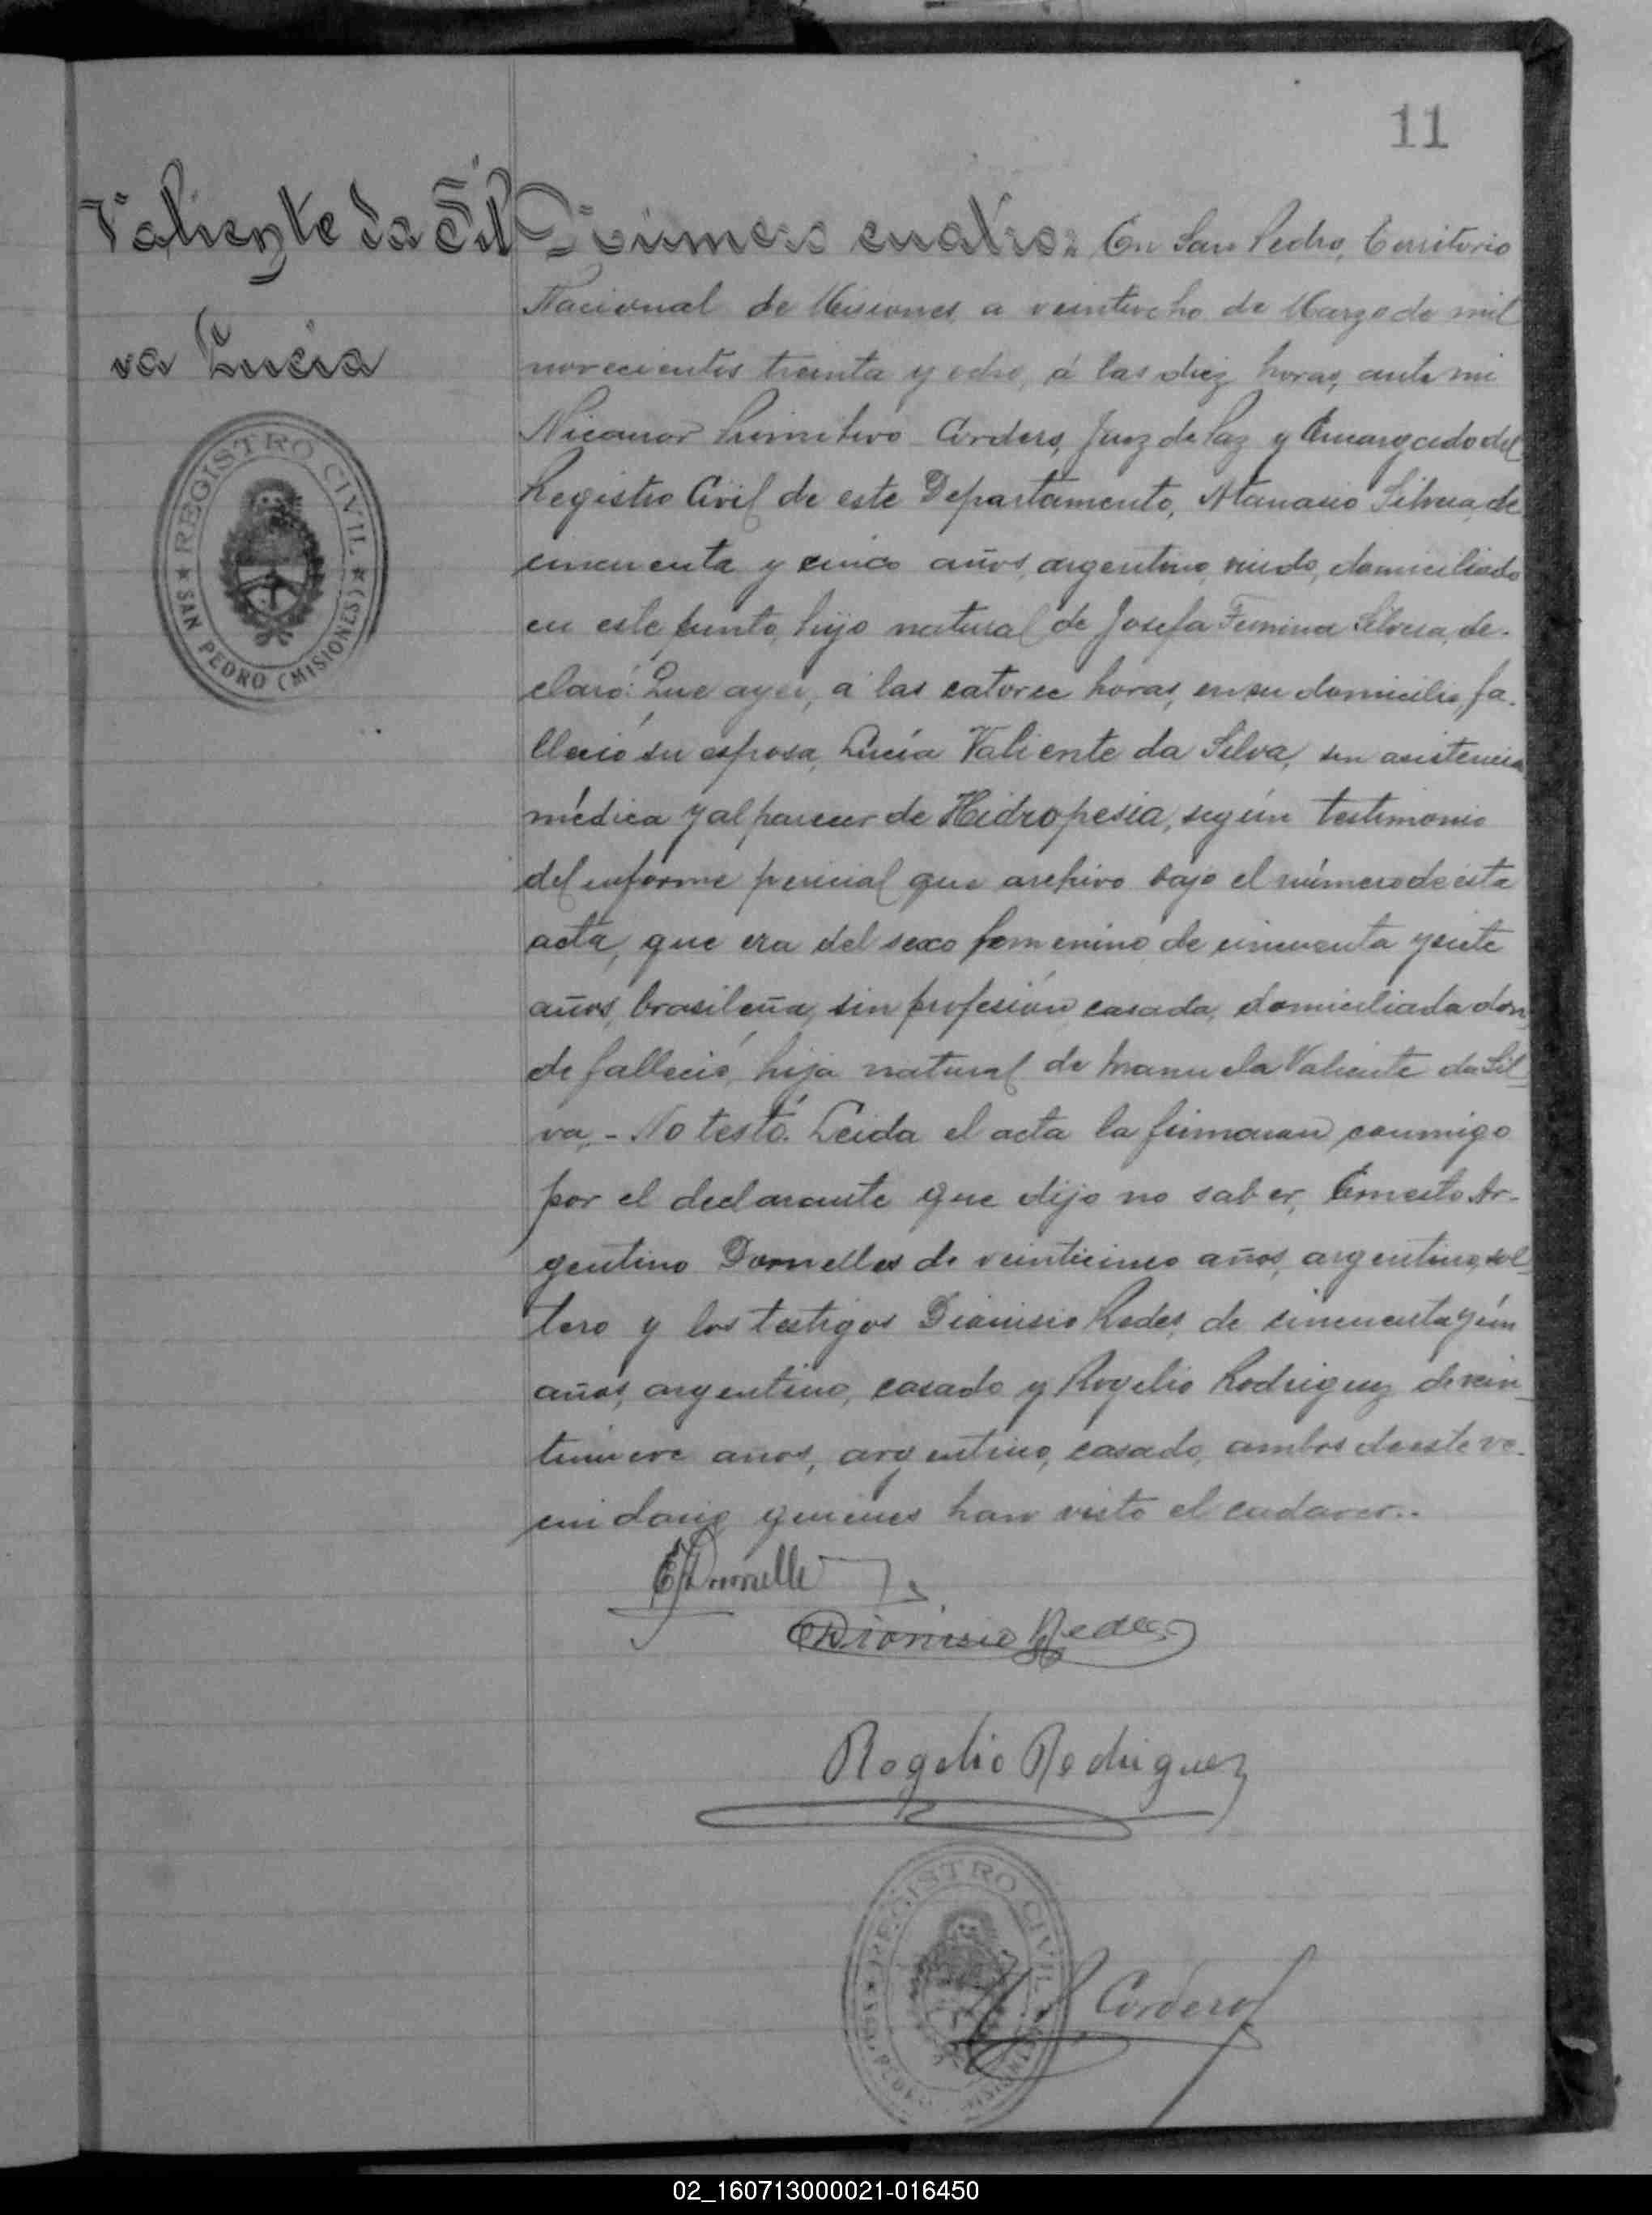 11
Valiente da Sil
va Lucía
REGISTRO CIVIL
SAN PEDRO (MISIONES)
Número cuatro: En San Pedro, Territorio
Nacional de Misiones a veintiocho de Marzo de mil
novecientos treinta y ocho, á las diez horas, ante mi
Nicanor Primitivo Cordero, Juez de Paz y Encargado del
Registro Civil de este Departamento, Atanacio Silvera, de
cincuenta y cinco años, argentino, viudo, domiciliado
en este punto, hijo natural de Josefa Silvera, de-
claró: Que ayer, a las catorce horas, en su domicilio, fa-
lleció su esposa, Lucía Valiente da Silva, sin asistencia
médica y al parecer de Hidropesia, según testimonio
del informe pericial que archivo bajo el número de esta
acta, que era del sexo femenino de cincuenta y siete
años, brasileña, sin profesión, casada, domiciliada don-
de falleció, hija natural de Manuela Valiente da Sil-
va.- No testó. Leida el acta la firmaron conmigo
por el declarante que dijo no saber, Ernesto Ar-
gentino Dornelles de veinticinco años, argentino, sol-
tero y los testigos Dionisio Redes, de cincuenta y ún
años, argentino, casado y Rogelio Rodriguez de vein-
tinueve años, argentino, casado, ambos de este ve-
cindario quienes han visto el cadaver..
E A Dornelles
Dionisio Redes
Rogelio Rodriguez
REGISTRO CIVIL
SAN PEDRO (MISIONES)
Cordero
02_160713000021-016450